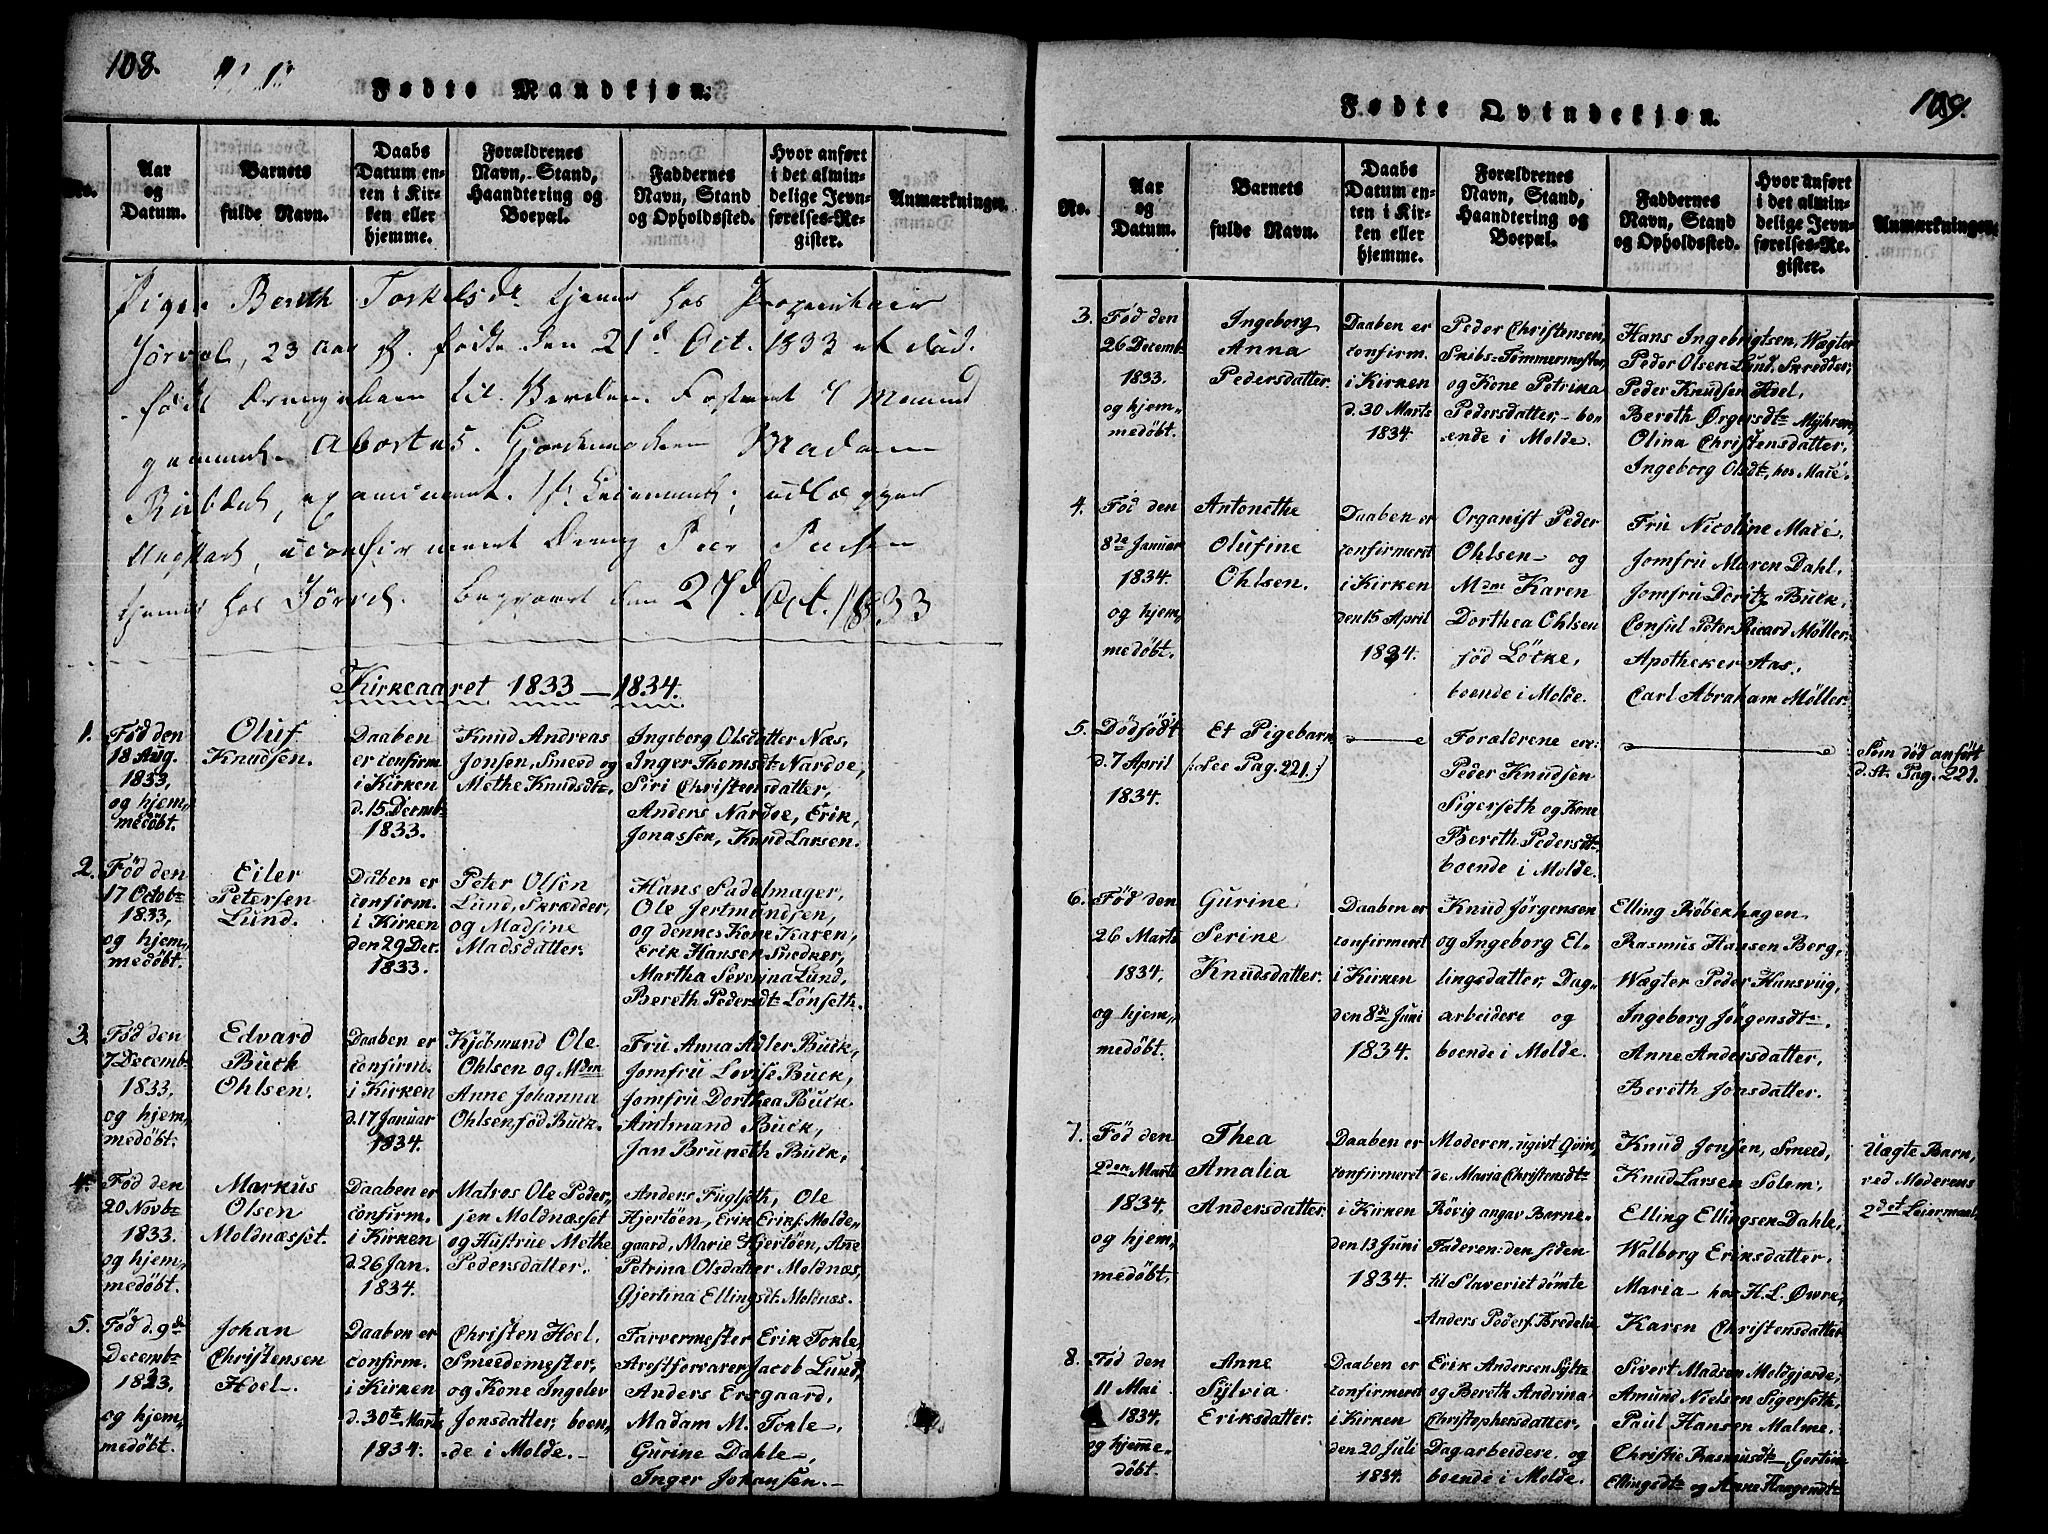 108.
Fødte Mandkjøn.
No.
Aar og Datum.
Barnets fulde Navn.
Daabs Datum enten i Kirken eller hjemme.
Forældrenes Navn, Stand, Haandtering og Boepæl.
Faddernes Navn, Stand og Opholdssted.
Hvor anført i det almindelige Jevnførelses-Register.
Anmærkninger.
Pigen Bereth Torkelsdr tjener hos
Jörvel, 23 Aar gl. fødte den 21d Oct. 1833 et død-
födt Drengebarn til Verden.
Abortus. Gjordemoderen Madam
examineret.
uconfirmeret Dreng Peer
tjener hos Jörvel. begravet den 27d Oct. 1833
Kirkeaaret 1833 — 1834.
1. Fød den
18 Aug.
1833,
og hjem„
medøbt.
Oluf
Knudsen.
Daaben
er confirm
i Kirken
d. 15 Decemb
1833.
Knud Andreas
Jonsen, Smeed og
Methe Knudsdtr.
Ingeborg Olsdatter Næs,
Inger Thomsdt Nardoe,
Siri Christensdatter,
Anders Nardoe, Erik
Jonassen, Knud Larsen.
2. Fød den
17 Octobr
1833,
og hjem„
medøbt.
Eiler
Petersen
Lund.
Daaben er
confirm.
i Kirken
den 29 Dec.
1833.
Peter Olsen
Lund, Skrædder,
og Madsine
Madsdatter.
Hans Sadelmager,
Ole Jertmundsen,
og dennes Kone Karen,
Erik Hansen Snedker,
Martha Severina Lund,
Bereth Pedersdt Lønseth.
3. Fød den
7 Decemb
1833,
og hjem„
medøbt.
Edvard
Buck
Ohlsen.
Daaben er
confirm.
i Kirken
d. 17 Januar
1834.
Kjøbmand Ole
Ohlsen og Mdm
Anne Johanna
Ohlsen fød Buck.
Fru Anna Adler Buck,
Jomfru Lovise Buck,
Jomfru Dorthea Buck
Amtmand Buck,
Jan Bruneth Buck,
4. Fød den
20 Novbr
1833.
og hjem„
medøbt.
Markus
Olsen
Moldnæsset.
Daaben er
confirm.
i Kirken
d. 26 Jan.
1834.
Matros Ole Peder„
sen Moldnæsset
og Hustrue Methe
Pedersdatter.
Anders Fuglseth, Ole
Hjertöen, Erik Erikss. Molde„
gaard, Marie Hjertöen, Anne
Petrina Olsdatter Moldnæs,
Gjertina Ellingsdt. Moldnæs.
5. Fød d. 9de
Decembr
1833,
og hjem„
medøbt.
Johan
Christensen
Hoel.
Daaben er
confirm.
i Kirken
d. 30te Marts
1834.
Christen Hoel,
Smeedemester,
og Kone Ingelev
Jonsdatter, boen„
de i Molde.
Farvermester Erik Tokle,
Arestforvarer Jacob Lund,
Anders Ersgaard,
Madam M. Tokle,
Gurine Dahle,
Inger Johansen.
109.
Fødte Qvindekjøn.
No.
Aar og Datum.
Barnets fulde Navn.
Daabs Datum enten i Kirken eller hjemme.
Forældrenes Navn, Stand, Haandtering og Boepæl.
Faddernes Navn, Stand og Opholdssted.
Hvor anført i det almindelige Jevnførelses-Register.
Anmærkninger.
3. Fød den
26 Decemb
1833.
og hjem„
medøbt.
Ingeborg
Anna
Pedersdatter.
Daaben er
confirm.
i Kirken
d. 30 Marts
1834.
Peder Christensen,
Skibs-Tømmermester,
og Kone Petrika
Pedersdatter, bo„
ende i Molde.
Hans Ingebrigtsen, Vægter
Peder Olsen Lund, Skredder,
Peder Knudsen Hoel,
Bereth Ørgersdt Myhren,
Olina Christensdatter,
Ingeborg Olsdt, hos Macé.
4. Fød den
8de Januar
1834.
og hjem„
medøbt.
Antonethe
Olufine
Ohlsen.
Daaben er
confirmeret
i Kirken
den 15 April
1834.
Organist Peder
Ohlsen og
Mdm Karen
Dorthea Ohlsen
fød Lötke,
boende i Molde.
Fru Nicoline Macé,
Jomfru Maren Dahl,
Jomfru Doritz Buck,
Consul Peter Ricard Møller,
Apotheker Aas,
Carl Abraham Møller.
5. Dødfødt
d. 7 April
1834.
Et Pigebarn
(: See Pag. 221. :)
Forældrene ere:
Peder Knudsen
Sigerseth og Kone
Bereth Pedersdt
boende i Molde.
Som død anført
d. St. Pag. 221.
6. Fød den
26 Marts
1834,
og hjem„
medøbt.
Gurine
Serine
Knudsdatter.
Daaben er
confirmeret
i Kirken
den 8de Juni
1834.
Knud Jørgensen
og Ingeborg El„
lingsdatter, Dag„
arbeidere og
boende i Molde.
Elling Røbekhagen,
Rasmus Hansen Berg,
Vægter Peder Hansviig,
Ingeborg Jørgensdtr.
Anne Andersdatter,
Bereth Jonsdatter.
7. Fød den
2den Marts
1834.
og hjem„
medøbt.
Thea
Amalia
Andersdatter.
Daaben er
confirmeret
i Kirken
den 13 Juni
1834.
Moderen, ugivt Qvin„
de, Maria Christensdtr
Røvig angav Barne„
Faderen: den siden
til Slaveriet dømte
Anders Peders. Bredelie
Knud Jonsen, Smeed,
Knud Larsen Solem,
Elling Ellingsen Dahle,
Walborg Eriksdatter
Maria hos H. L. Øwre,
Karen Christensdatter
Uægte Barn,
ved Moderens
2det Leiermaal.
8. Fød den
11 Mai
1834.
og hjemme„
døbt.
Anne
Sylvia
Eriksdatter.
Daaben er
confirmeret
i Kirken
den 20 Juli
1834.
Erik Andersen Sylte
og Bereth Andrina
Christophersdatter,
Dagarbeidere og
boende i Molde.
Sivert Madsen Moldgjerde,
Amund Nielsen Sigerseth,
Paul Hansen Malme,
Christie Rasmusdt Gertine
Ellingsdtr og Anne Haagendtr